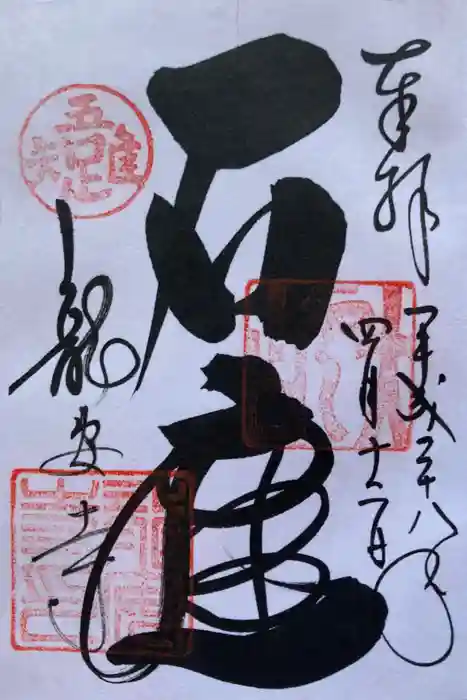 奉拝
平成二十八年
四月十二日
石庭
龍安寺
吾唯足知